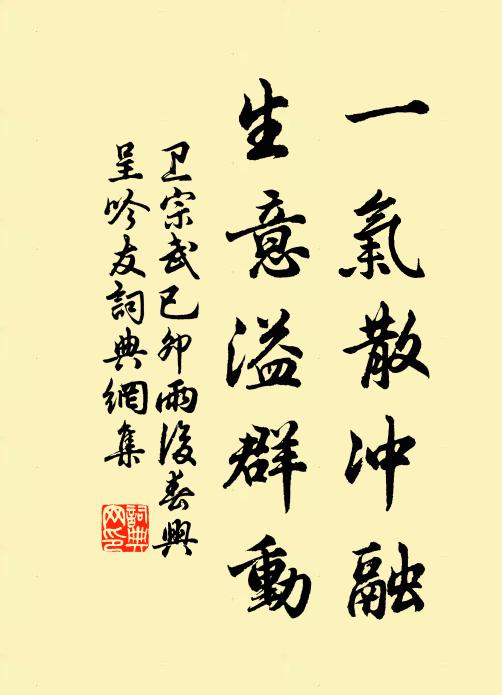 一氣散冲融
生意溢群動
卫宗武已卯雨後春興
呈吟友詞典網集
詞典
网印